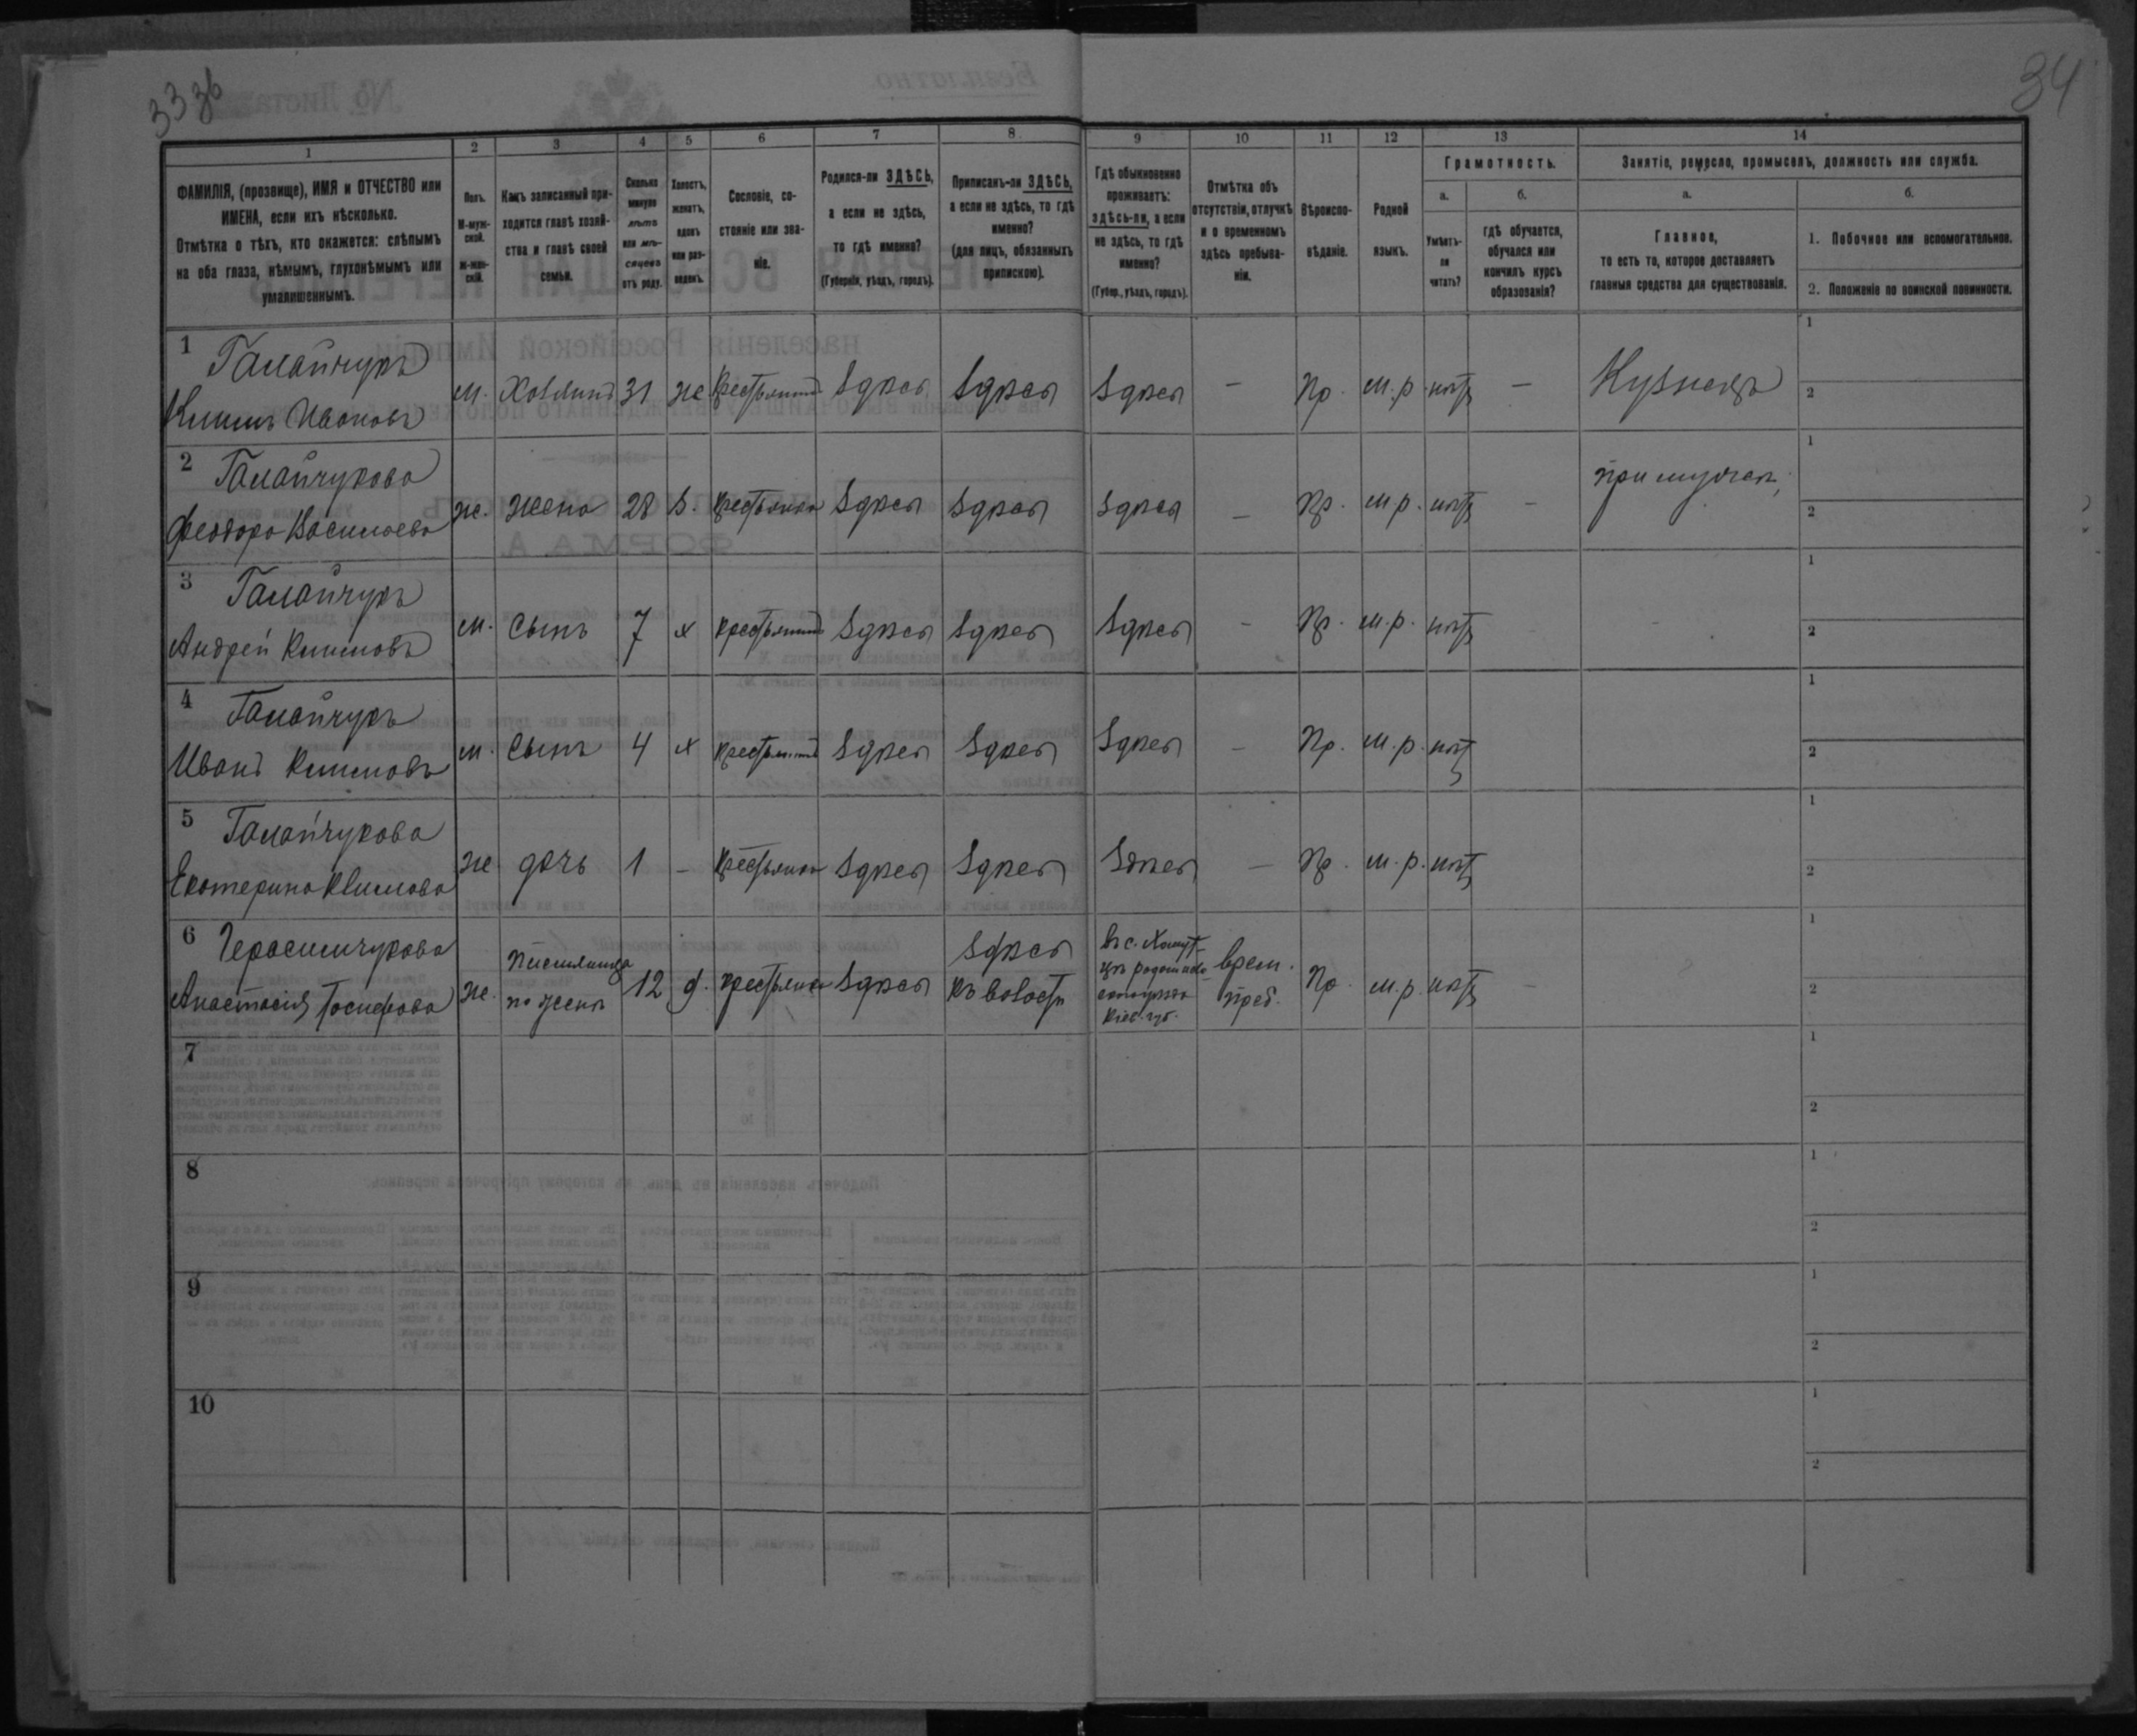 33 зв
34
1
2
3
4
5
6
7
8
9
10
11
12
13
14
ФАМИЛІЯ, (прозвище), ИМЯ и ОТЧЕСТВО или
ИМЕНА, если ихъ нѣсколько.
Отмѣтка о тѣхъ, кто окажется: слѣпымъ
на оба глаза, нѣмымъ, глухонѣмымъ или
умалишеннымъ.
Полъ.
М-муж-
ской.
Ж-жен-
скій.
Какъ записанный при-
ходится главѣ хозяй-
ства и главѣ своей
семьи.
Сколько
минуло
лѣтъ
или мѣ-
сяцевъ
отъ роду.
Холостъ,
женатъ,
вдовъ
или раз-
веденъ.
Сословіе, со-
стояніе или зва-
ніе.
Родился-ли ЗДѢСЬ,
а если не здѣсь,
то гдѣ именно?
(Губернія, уѣздъ, городъ).
Приписанъ-ли ЗДѢСЬ,
а если не здѣсь, то гдѣ
именно?
(для лицъ, обязанныхъ
припискою).
Гдѣ обыкновенно
проживаетъ:
здѣсь-ли, а если
не здѣсь, то гдѣ
именно?
(Губер., уѣздъ, городъ).
Отмѣтка объ
отсутствіи, отлучкѣ
и о временномъ
здѣсь пребыва-
ніи.
Вѣроиспо-
вѣданіе.
Родной
языкъ.
Грамотность.
а.
Умѣетъ-
ли
читать?
б.
гдѣ обучается,
обучался или
кончилъ курсъ
образованія?
Занятіе, ремесло, промыселъ, должность или служба.
а.
Главное,
то есть то, которое доставляетъ
главныя средства для существованія.
б.
1. Побочное или вспомогательное.
2. Положеніе по воинской повинности.
1 Галайчукъ
Климъ Ивановъ
м. Хозяинъ 31 ж Крестьянинъ Здѣсь Здѣсь Здѣсь — Пр. м.р. нѣтъ — Кузнецъ
1
2
2 Галайчукова
Феодора Васильева
ж. жена 28 з. крестьянка Здѣсь Здѣсь Здѣсь — Пр. м.р. нѣтъ — при мужѣ
1
2
3 Галайчукъ
Андрей Климовъ
м. сынъ 7 х крестьянинъ Здѣсь Здѣсь Здѣсь — Пр. м.р. нѣтъ
1
2
4 Галайчукъ
Иванъ Климовъ
м. сынъ 4 х крестьянинъ Здѣсь Здѣсь Здѣсь — Пр. м.р. нѣтъ
1
2
5 Галайчукова
Екатерина Климова
ж дочь 1 — крестьянка Здѣсь Здѣсь Здѣсь — Пр. м.р. нѣтъ
1
2
6 Герасимчукова
Анастасія Іосифова
ж. племянница
по женѣ
12 д. крестьянка Здѣсь
Здѣсь
къ волости
въ с.
Кіев. губ.
врем.
преб.
Пр. м.р. нѣтъ —
1
2
7
1
2
8
1
2
9
1
2
10
1
2